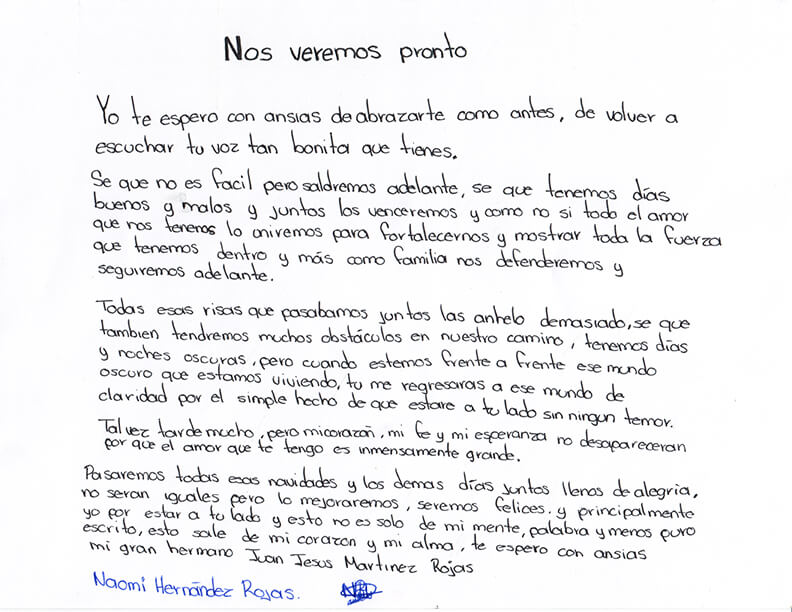 Nos veremos pronto
Yo te espero con ansias de abrazarte como antes, de volver a
escuchar tu voz tan bonita que tienes.
Se que no es facil pero saldremos adelante, se que tenemos días
buenos y malos y juntos los venceremos y como no si todo el amor
que nos tenemos lo uniremos para fortalecernos y mostrar toda la fuerza
que tenemos dentro y más como familia nos defenderemos y
seguiremos adelante.
Todas esas risas que pasabamos juntos las anhelo demasiado, se que
tambien tendremos muchos obstáculos en nuestro camino, tenemos días
y noches oscuras, pero cuando estemos frente a frente ese mundo
oscuro que estamos viviendo, tu me regresaras a ese mundo de
claridad por el simple hecho de que estare a tu lado sin ningun temor.
Tal vez tarde mucho, pero mi corazón, mi fe y mi esperanza no desapareceran
por que el amor que te tengo es inmensamente grande.
Pasaremos todas esas navidades y los demas días juntos llenos de alegria,
no seran iguales pero lo mejoraremos, seremos felices. y principalmente
yo por estar a tu lado y esto no es solo de mi mente, palabra y menos puro
escrito, esto sale de mi corazon y mi alma, te espero con ansias
mi gran hermano Juan Jesus Martinez Rojas
Naomi Hernández Rojas.